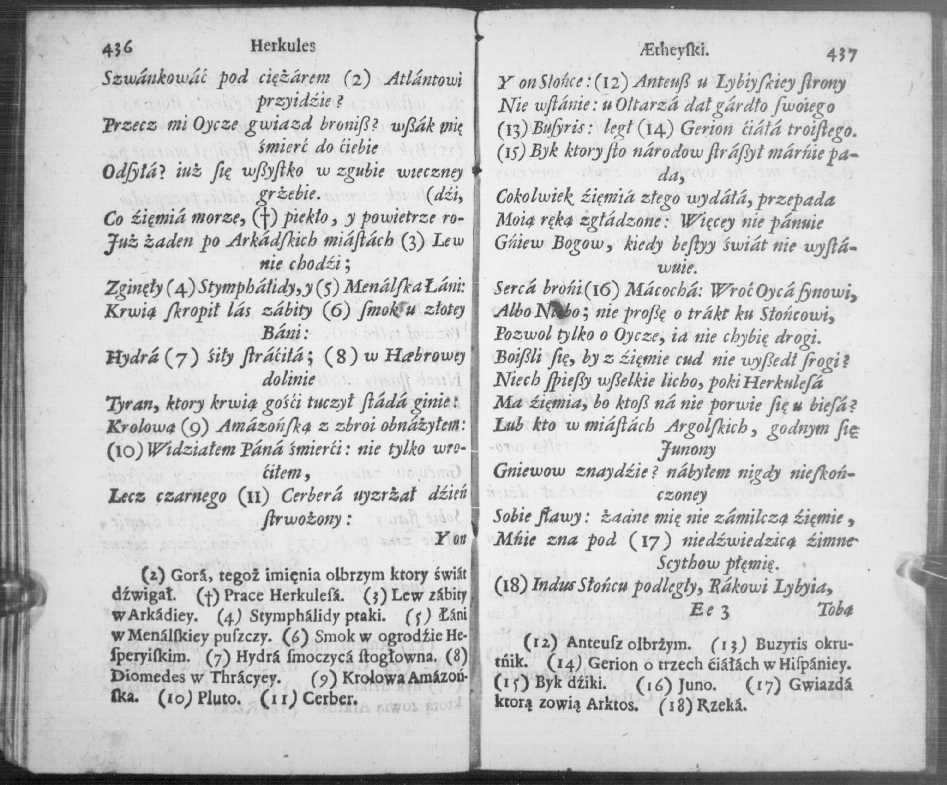 436 Herkules
Szwánkowáć pod ciężárem (2) Atlántowi
przyidźie?
Przecz mi Oycze gwiazd broniß? wßák mię
śmierć do ćiebie
Odſyłá? iuż ſię wßyſtko w zgubie wieczney
grżebie. (dźi,
Co źięmiá morze, (†) piekło, y powietrze ro-
Już żaden po Arkádſkich miáſtách (3) Lew
nie chodźi;
Zginęły (4) Stymphálidy, y (5) Menálſka Łáni:
Krwią ſkropił lás zábity (6) ſmok u złotey
Báni:
Hydrá (7) śiły ſtráćiłá; (8) w Hæbrowey
dolinie
Tyran, ktory krwią gośći tuczył ſtádá ginie:
Krolową (9) Amázońſką z zbroi obnáżyłem:
(10) Widziałem Páná śmierći: nie tylko wro-
ćiłem,
Lecz czarnego (11) Cerberá uyzrżał dźień
ſtrwożony:
Y on
(2) Gorá, tegoż imięnia olbrzym ktory świát
dźwigał. (†) Prace Herkuleſá. (3) Lew zábity
w Arkádiey. (4) Stymphálidy ptaki. (5) Łáni
w Menálſkiey puſzczy. (6) Smok w ogrodźie He-
ſperyiſkim. (7) Hydrá ſmoczycá ſtogłowna. (8)
Diomedes w Thrácyey. (9) Krolowa Amázoń-
ſka. (10) Pluto. (11) Cerber.
Ætheyſki. 437
Y on Słońce: (12) Anteuß u Lybiyſkiey ſtrony
Nie wſtánie: u Ołtarzá dał gárdło ſwoiego
(13) Buſyris: legł (14) Gerion ćiáłá troiſtego.
(15) Byk ktory ſto národow ſtráßył márńie pa-
da,
Cokolwiek źięmiá złego wydáłá, przepada
Moią ręką zgłádzone: Więcey nie pánuie
Gńiew Bogow, kiedy beſtyy świát nie wyſtá-
wuie.
Sercá brońi (16) Mácochá: Wroć Oycá ſynowi,
Albo Niebo; nie proßę o trákt ku Słońcowi,
Pozwol tylko o Oycze, ia nie chybię drogi.
Boißli ſię, by z źięmie cud nie wyßedł ſrogi?
Niech ſpießy wßelkie licho, poki Herkuleſá
Ma źięmia, bo ktoß ná nie porwie ſię u bieſá?
Lub kto w miáſtách Argolſkich, godnym ſię
Junony
Gniewow znaydźie? nábyłem nigdy nieſkoń-
czoney
Sobie ſławy: żadne mię nie zámilczą źięmie,
Mńie zna pod (17) niedźwiedzicą źimne
Scythow płęmię.
(18) Indus Słońcu podległy, Rákowi Lybyia,
Ee 3 Tobą
(12) Anteuſz olbrżym. (13) Buzyris okru-
tńik. (14) Gerion o trzech ćiáłách w Hiſpániey.
(15) Byk dźiki. (16) Juno. (17) Gwiazdá
ktorą zowią Arktos. (18) Rzeká.